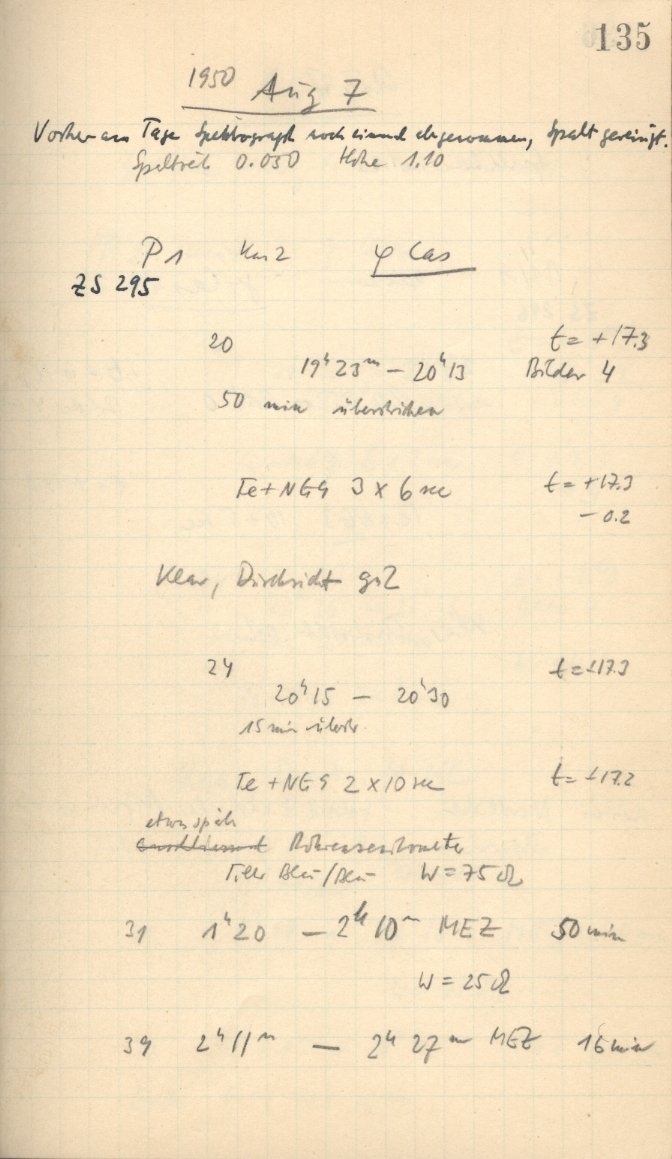 135
1950 Aug 7
Vorher am Tage Spektrograph noch einmal abgenommen, Spalt gereinigt.
Spaltweite 0.030 Höhe 1.10
P1 Kas2 φ Cas
ZS 295
20 t = +17.3
19h 23m — 20h 13 Bilder 4
50 min überstrichen
Fe+NG9 3 x 6 sec t = +17.3
- 0.2
Klar, Durchsicht gs2
24 t = +17.3
20h 15 — 20h 30
15 min überstr.
Fe+NG9 2 x 10 sec t = +17.2
etwas spät
Röhrensensitometer
Filter Blau/Blau W = 75 Ω
31 1h 20 — 2h 10m MEZ 50 min
W = 25 Ω
39 2h 11m — 2h 27m MEZ 16 min